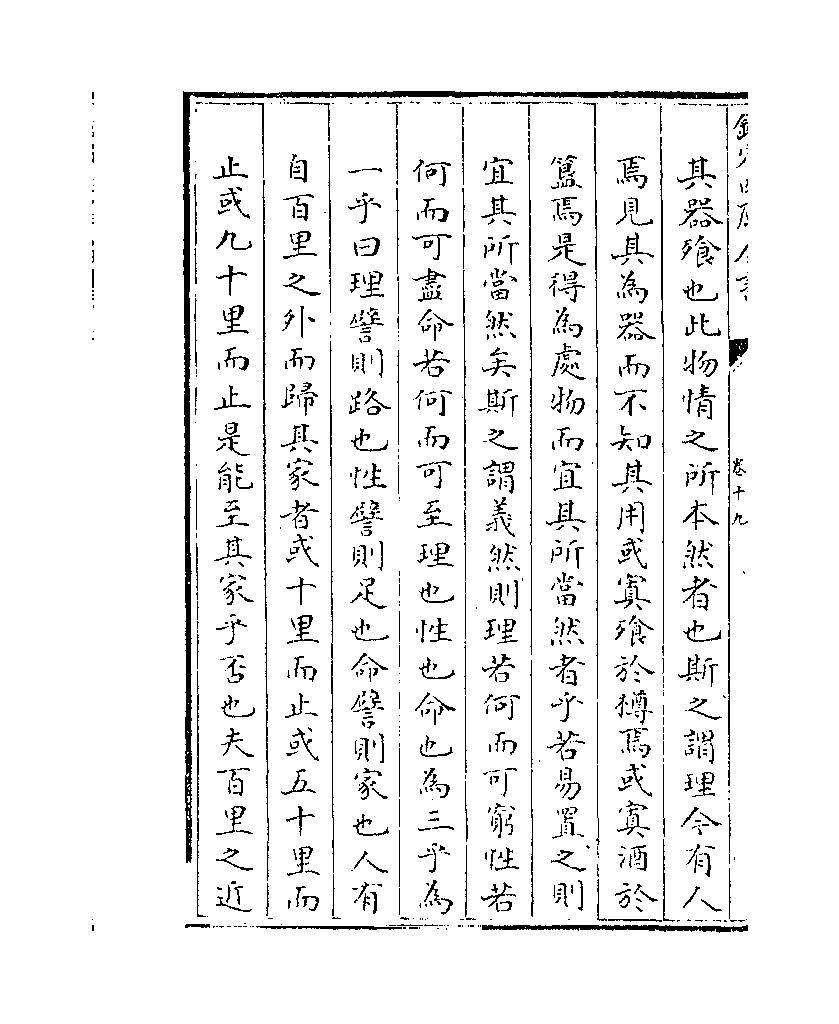 欽定四庫全書
卷十九
其器飱也此物情之所本然者也斯之謂理今有人
焉見其為器而不知其用或寘飱於樽焉或寘酒於
簋焉是得為處物而宜其所當然者乎若易置之則
宜其所當然矣斯之謂義然則理若何而可窮性若
何而可盡命若何而可至理也性也命也為三乎為
一乎曰理譬則路也性譬則足也命譬則家也人有
自百里之外而歸其家者或十里而止或五十里而
止或九十里而止是能至其家乎否也夫百里之近